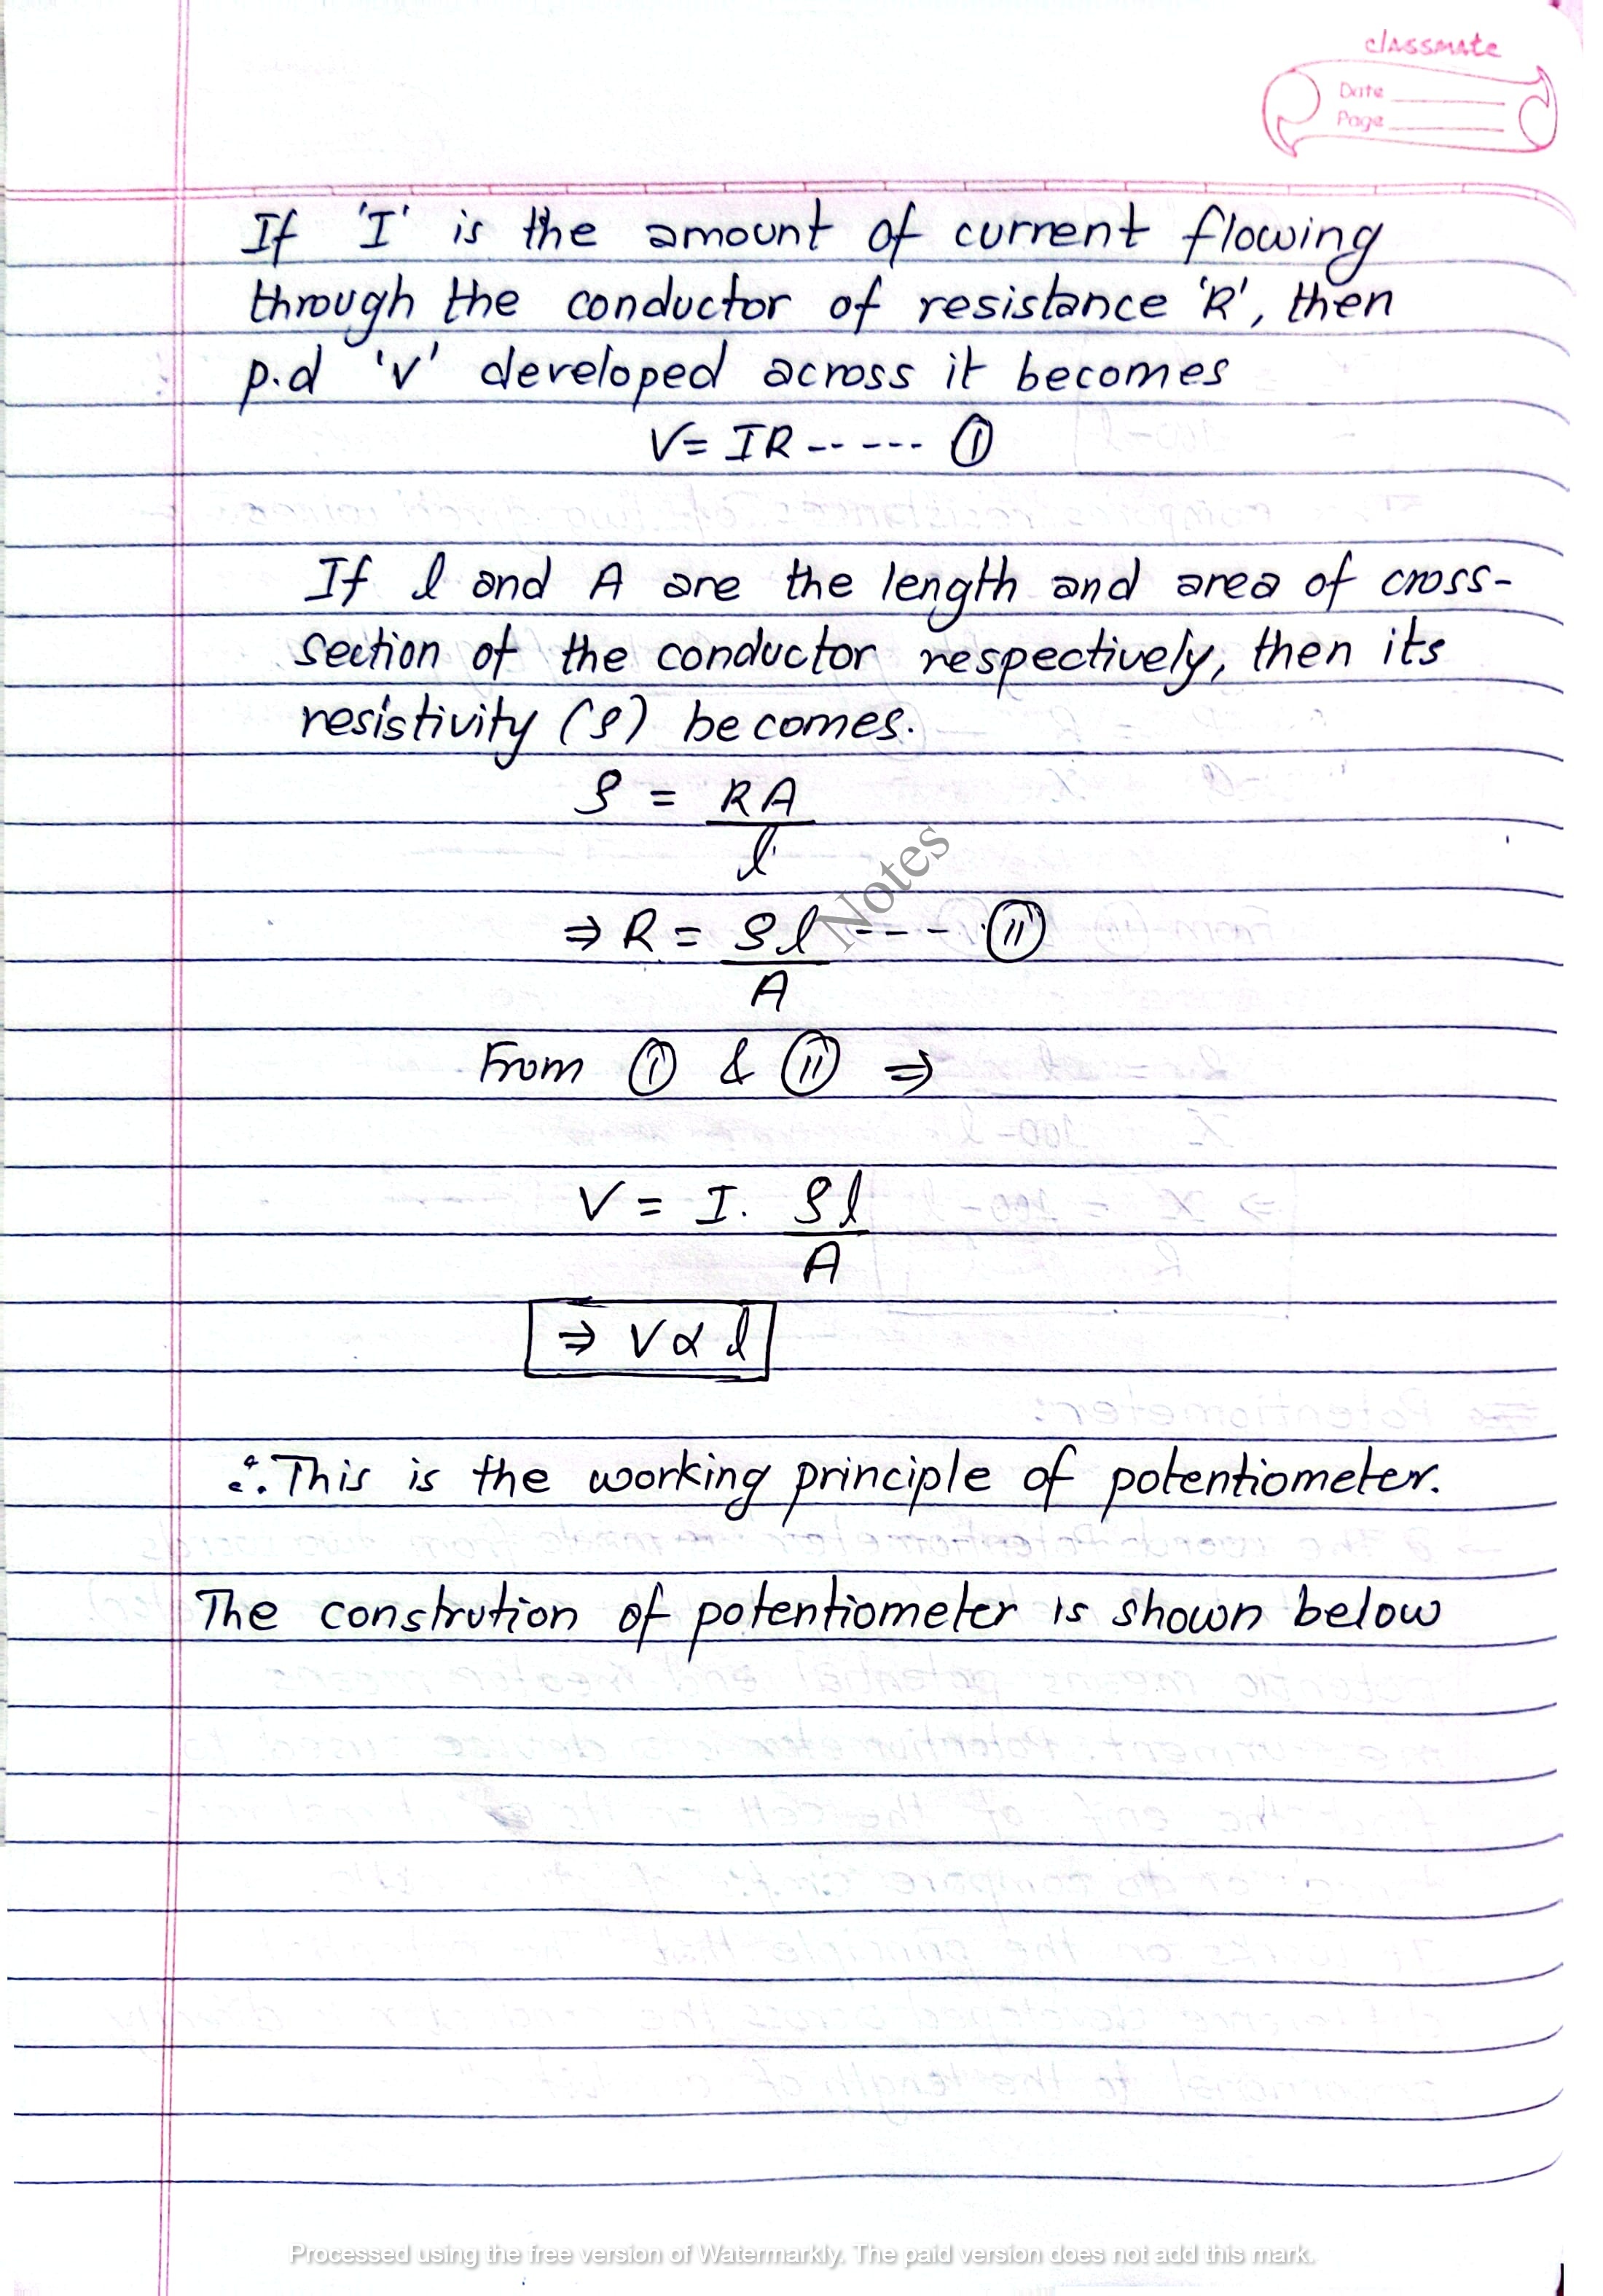 classmate
Date
Page
If 'I' is the amount of current flowing
through the conductor of resistance 'R', then
p.d 'v' developed across it becomes
V = IR ------ (I)
If l and A are the length and area of cross-
section of the conductor respectively, then its
resistivity (ρ) becomes.
ρ = RA
l
Notes
⇒ R = ρl ---- (II)
A
From (I) & (II) ⇒
V = I. ρl
A
⇒ V ∝ l
∴ This is the working principle of potentiometer.
The constrution of potentiometer is shown below
Processed using the free version of Watermarkly. The paid version does not add this mark.